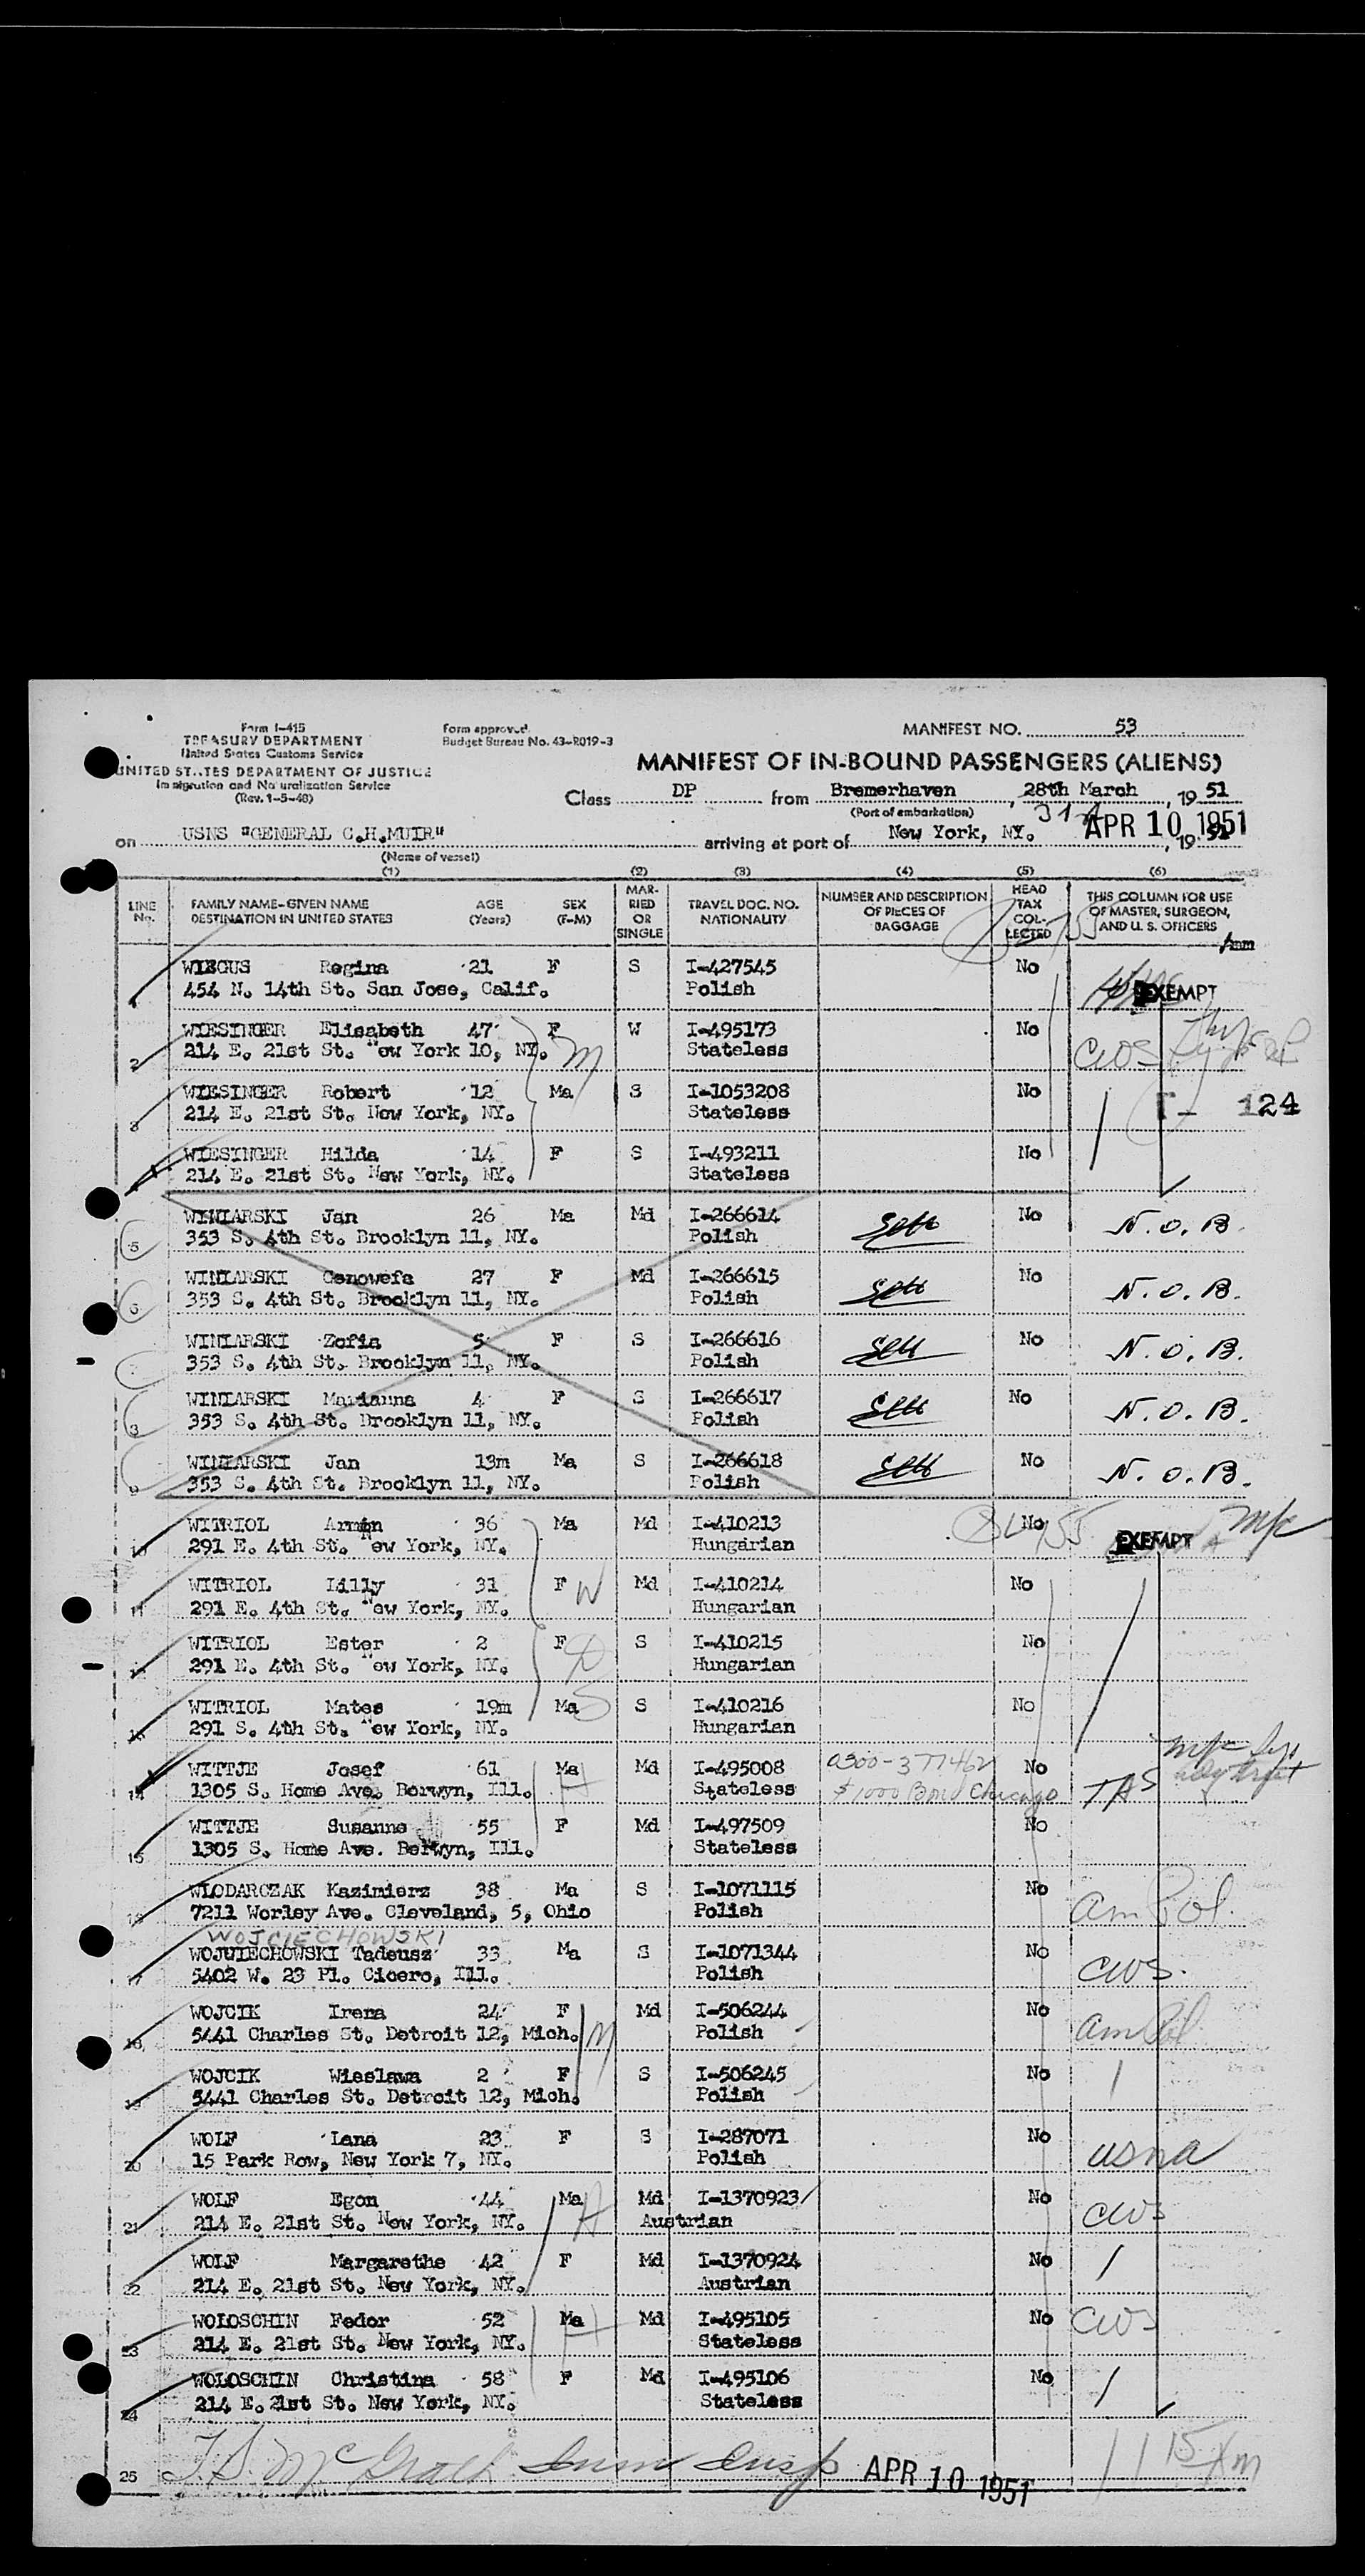 Form I-415
TREASURY DEPARTMENT
United States Customs Service
UNITED STATES DEPARTMENT OF JUSTICE
Immigration and Naturalization Service
(Rev. 1-5-48)
Form approved.
Budget Bureau No. 43-R019-3
MANIFEST NO. 53
MANIFEST OF IN-BOUND PASSENGERS (ALIENS)
Class DP from Bremerhaven, 28th March, 19 51
(Port of embarkation) 31st
on USNS "GENERAL C.H.MUIR" arriving at port of New York, NY. APR 10 1951, 19 51
(Name of vessel)
(1) (2) (3) (4) (5) (6)
LINE No. FAMILY NAME-GIVEN NAME DESTINATION IN UNITED STATES AGE (Years) SEX (F-M) MARRIED OR SINGLE TRAVEL DOC. NO. NATIONALITY NUMBER AND DESCRIPTION OF PIECES OF BAGGAGE HEAD TAX COLLECTED THIS COLUMN FOR USE OF MASTER, SURGEON, AND U. S. OFFICERS
1 WIECUS Regina 21 F S I-427545 No
454 N. 14th St. San Jose, Calif. Polish EXEMPT
WIESINGER Elisabeth 47 F W I-495173 No
2 214 E. 21st St. New York 10, NY. M Stateless CWS
WIESINGER Robert 12 Ma S I-1053208 No
3 214 E. 21st St. New York, NY. Stateless T- 124
WIESINGER Hilda 14 F S I-493211 No
214 E. 21st St. New York, NY. Stateless
WINIARSKI Jan 26 Ma Md I-266614 No N.O.B.
5 353 S. 4th St. Brooklyn 11, NY. Polish
WINIARSKI Genowefa 27 F Md I-266615 No N.O.B.
6 353 S. 4th St. Brooklyn 11, NY. Polish
WINIARSKI Zofia 5 F S I-266616 No N.O.B.
7 353 S. 4th St. Brooklyn 11, NY. Polish
WINIARSKI Marianna 4 F S I-266617 No N.O.B.
8 353 S. 4th St. Brooklyn 11, NY. Polish
WINIARSKI Jan 13m Ma S I-266618 No N.O.B.
9 353 S. 4th St. Brooklyn 11, NY. Polish
WITRIOL Armin 36 Ma Md I-410213 No
10 291 E. 4th St. New York, NY. Hungarian EXEMPT
WITRIOL Lilly 31 F W Md I-410214 No
11 291 E. 4th St. New York, NY. Hungarian
WITRIOL Ester 2 F D S I-410215 No
12 291 E. 4th St. New York, NY. Hungarian
WITRIOL Mates 19m Ma S S I-410216 No
13 291 S. 4th St. New York, NY. Hungarian
WITTJE Josef 61 Ma H Md I-495008 0300-377462 No
14 1305 S. Home Ave. Berwyn, Ill. Stateless $1000 Bond Chicago
WITTJE Susanne 55 F Md I-497509 No
15 1305 S. Home Ave. Berwyn, Ill. Stateless
WLODARCZAK Kazimierz 38 Ma S I-1071115 No
16 7211 Worley Ave. Cleveland, 5, Ohio Polish Am Pol.
WOJCIECHOWSKI
WOJUIECHOWSKI Tadeusz 33 Ma S I-1071344 No
17 5402 W. 23 Pl. Cicero, Ill. Polish CWS.
WOJCIK Irena 24 F Md I-506244 No
18 5441 Charles St. Detroit 12, Mich. M Polish Am Pol.
WOJCIK Wieslawa 2 F S I-506245 No
19 5441 Charles St. Detroit 12, Mich. Polish
WOLF Lana 23 F S I-287071 No
20 15 Park Row, New York 7, NY. Polish USNA
WOLF Egon 44 Ma H Md I-1370923 No
21 214 E. 21st St. New York, NY. Austrian CWS
WOLF Margarethe 42 F Md I-1370924 No
22 214 E. 21st St. New York, NY. Austrian
WOLOSCHIN Fedor 52 Ma H Md I-495105 No CWS
23 214 E. 21st St. New York, NY. Stateless
WOLOSCHIN Christina 58 F Md I-495106 No
24 214 E. 21st St. New York, NY. Stateless
25 T.S. McGrath Imm Insp APR 10 1951 11 15 Am